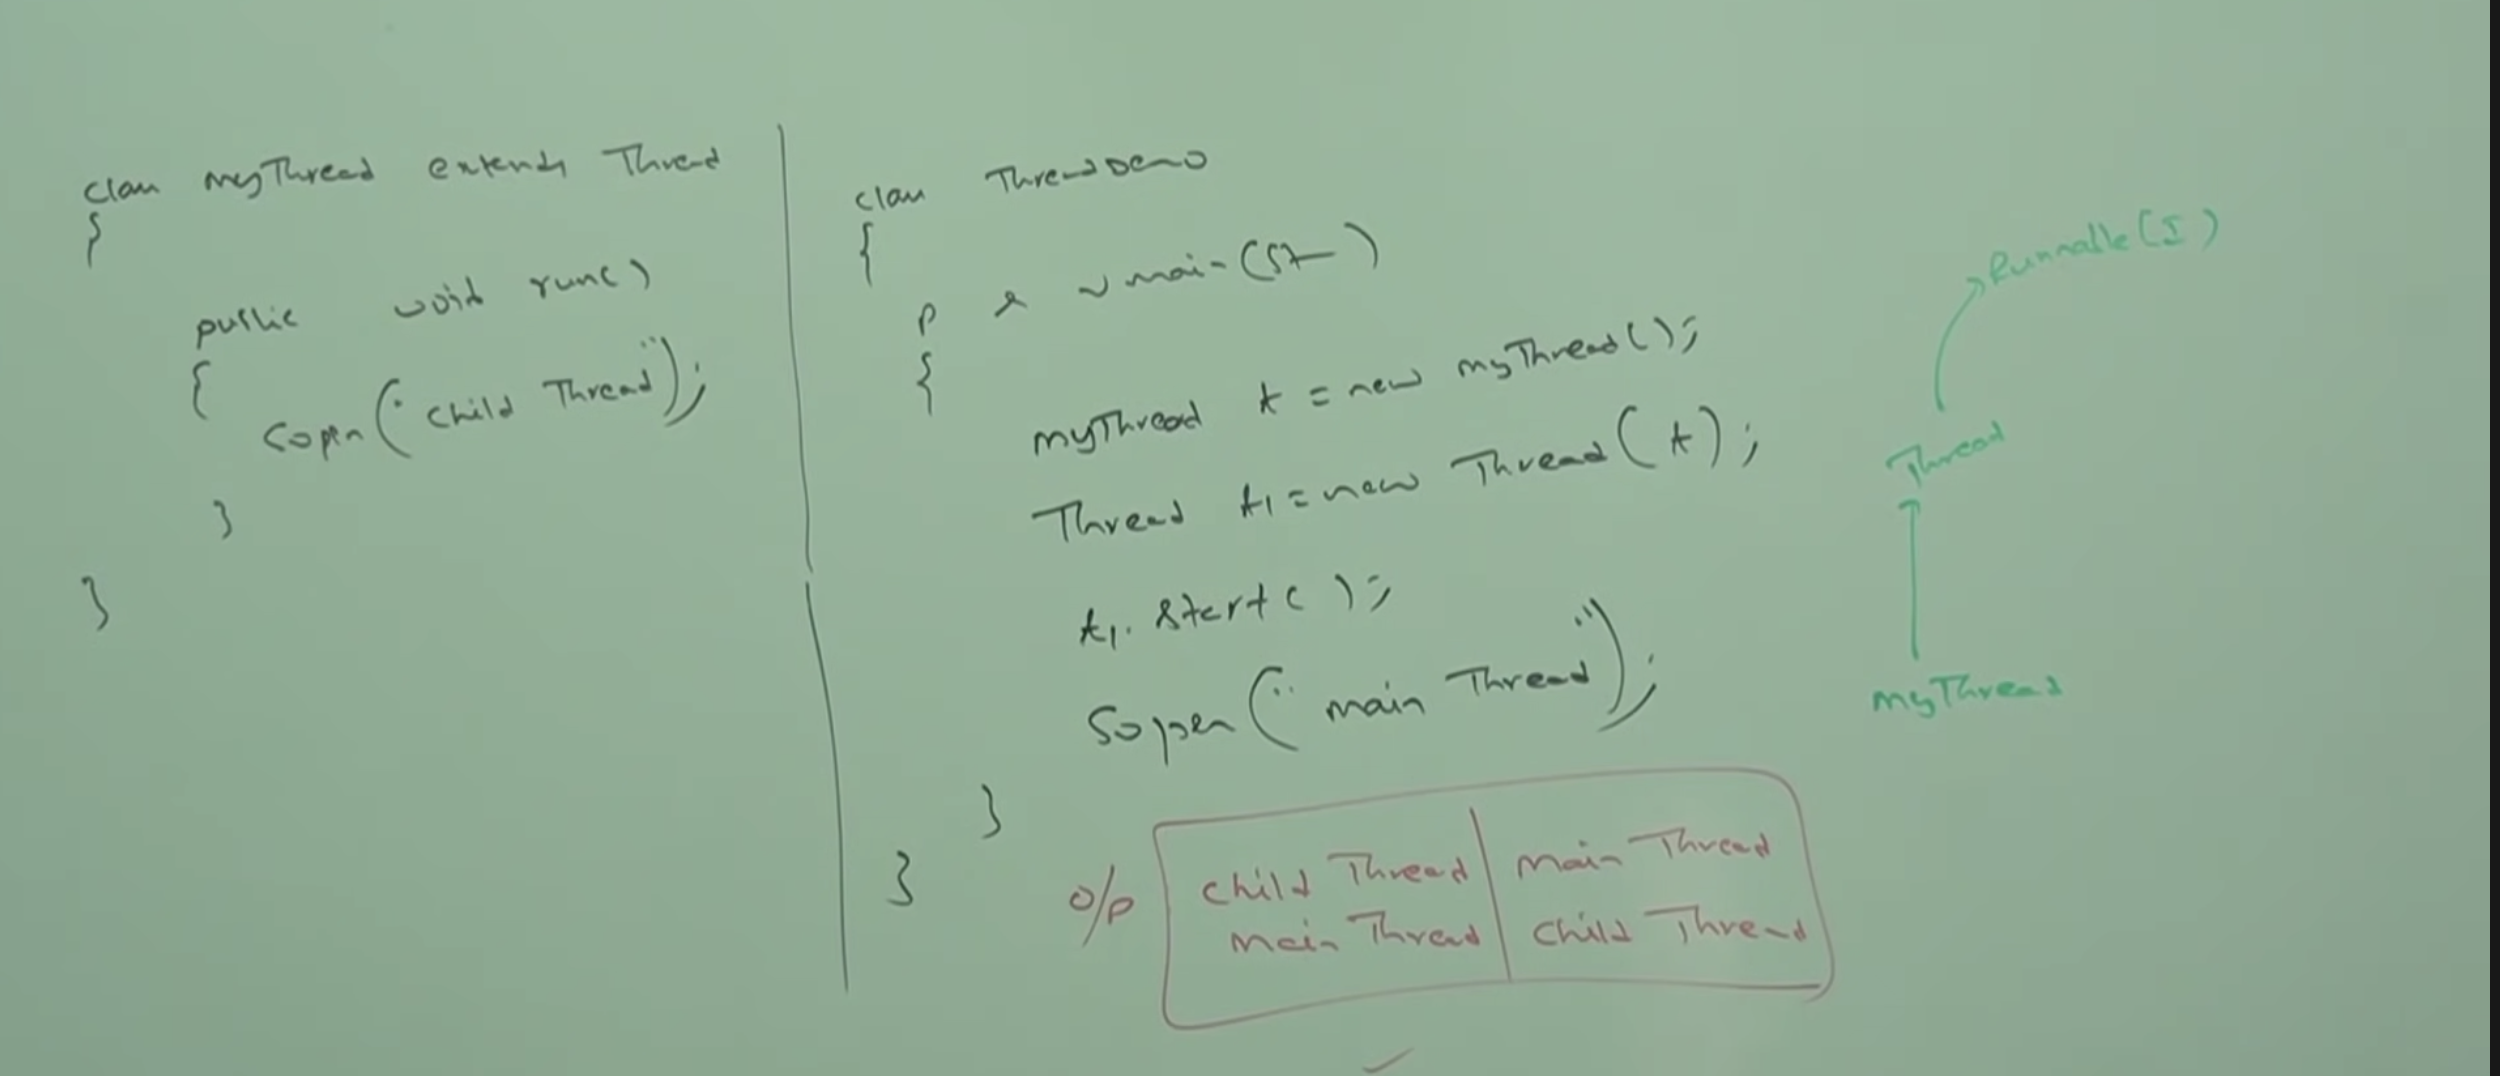 class myThread extends Thread
{
public void run()
{
Sopln("child Thread");
}
}
class ThreadDemo
{
p s v main(St—)
{
myThread t = new myThread();
Thread t1 = new Thread(t);
t1.start();
Sopln("main Thread");
}
}
o/p
child Thread
main Thread
main Thread
child Thread
Runnable(I)
Thread
myThread